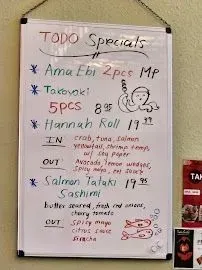 TODO Specials
* Ama Ebi 2pcs MP
* Takoyaki
5PCS 8.95
* Hannah Roll 19.99
IN crab, tuna, salmon
yellowtail, shrimp temp,
w/ soy paper
OUT Avocado, lemon wedges,
spicy mayo, eel sauce
* Salmon Tataki 19.95
Sashimi
butter seared, fresh red onions,
cherry tomato
OUT spicy mayo
citrus sauce
siracha
TAK